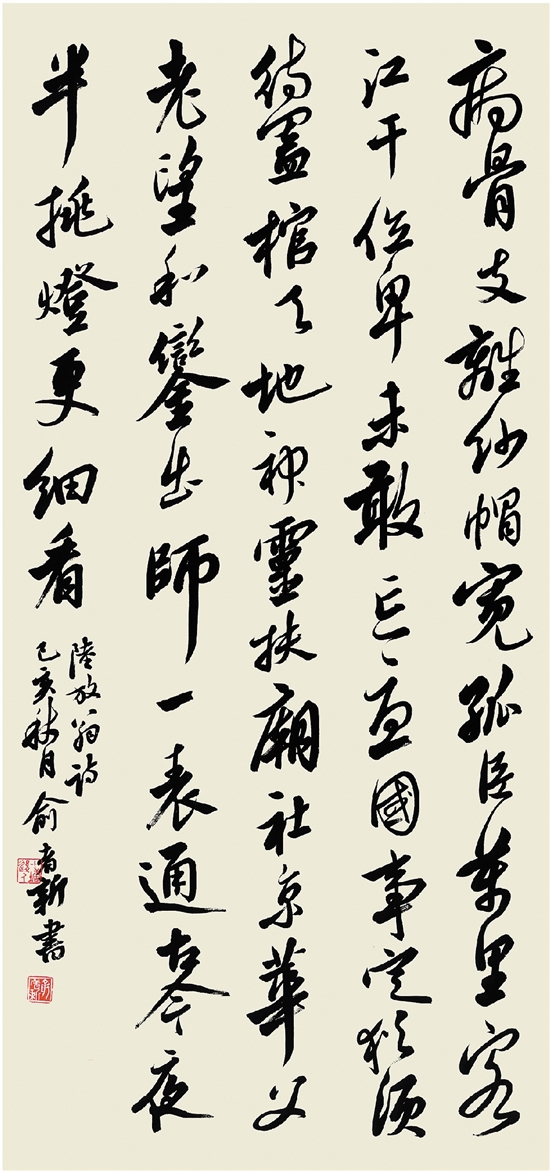 病骨支離紗帽寬孤臣萬里客
江干位卑未敢忘憂國事定猶須
待闔棺天地神靈扶廟社京華父
老望和鑾出師一表通古今夜
半挑燈更細看
陸放翁詩
己亥秋月俞新書